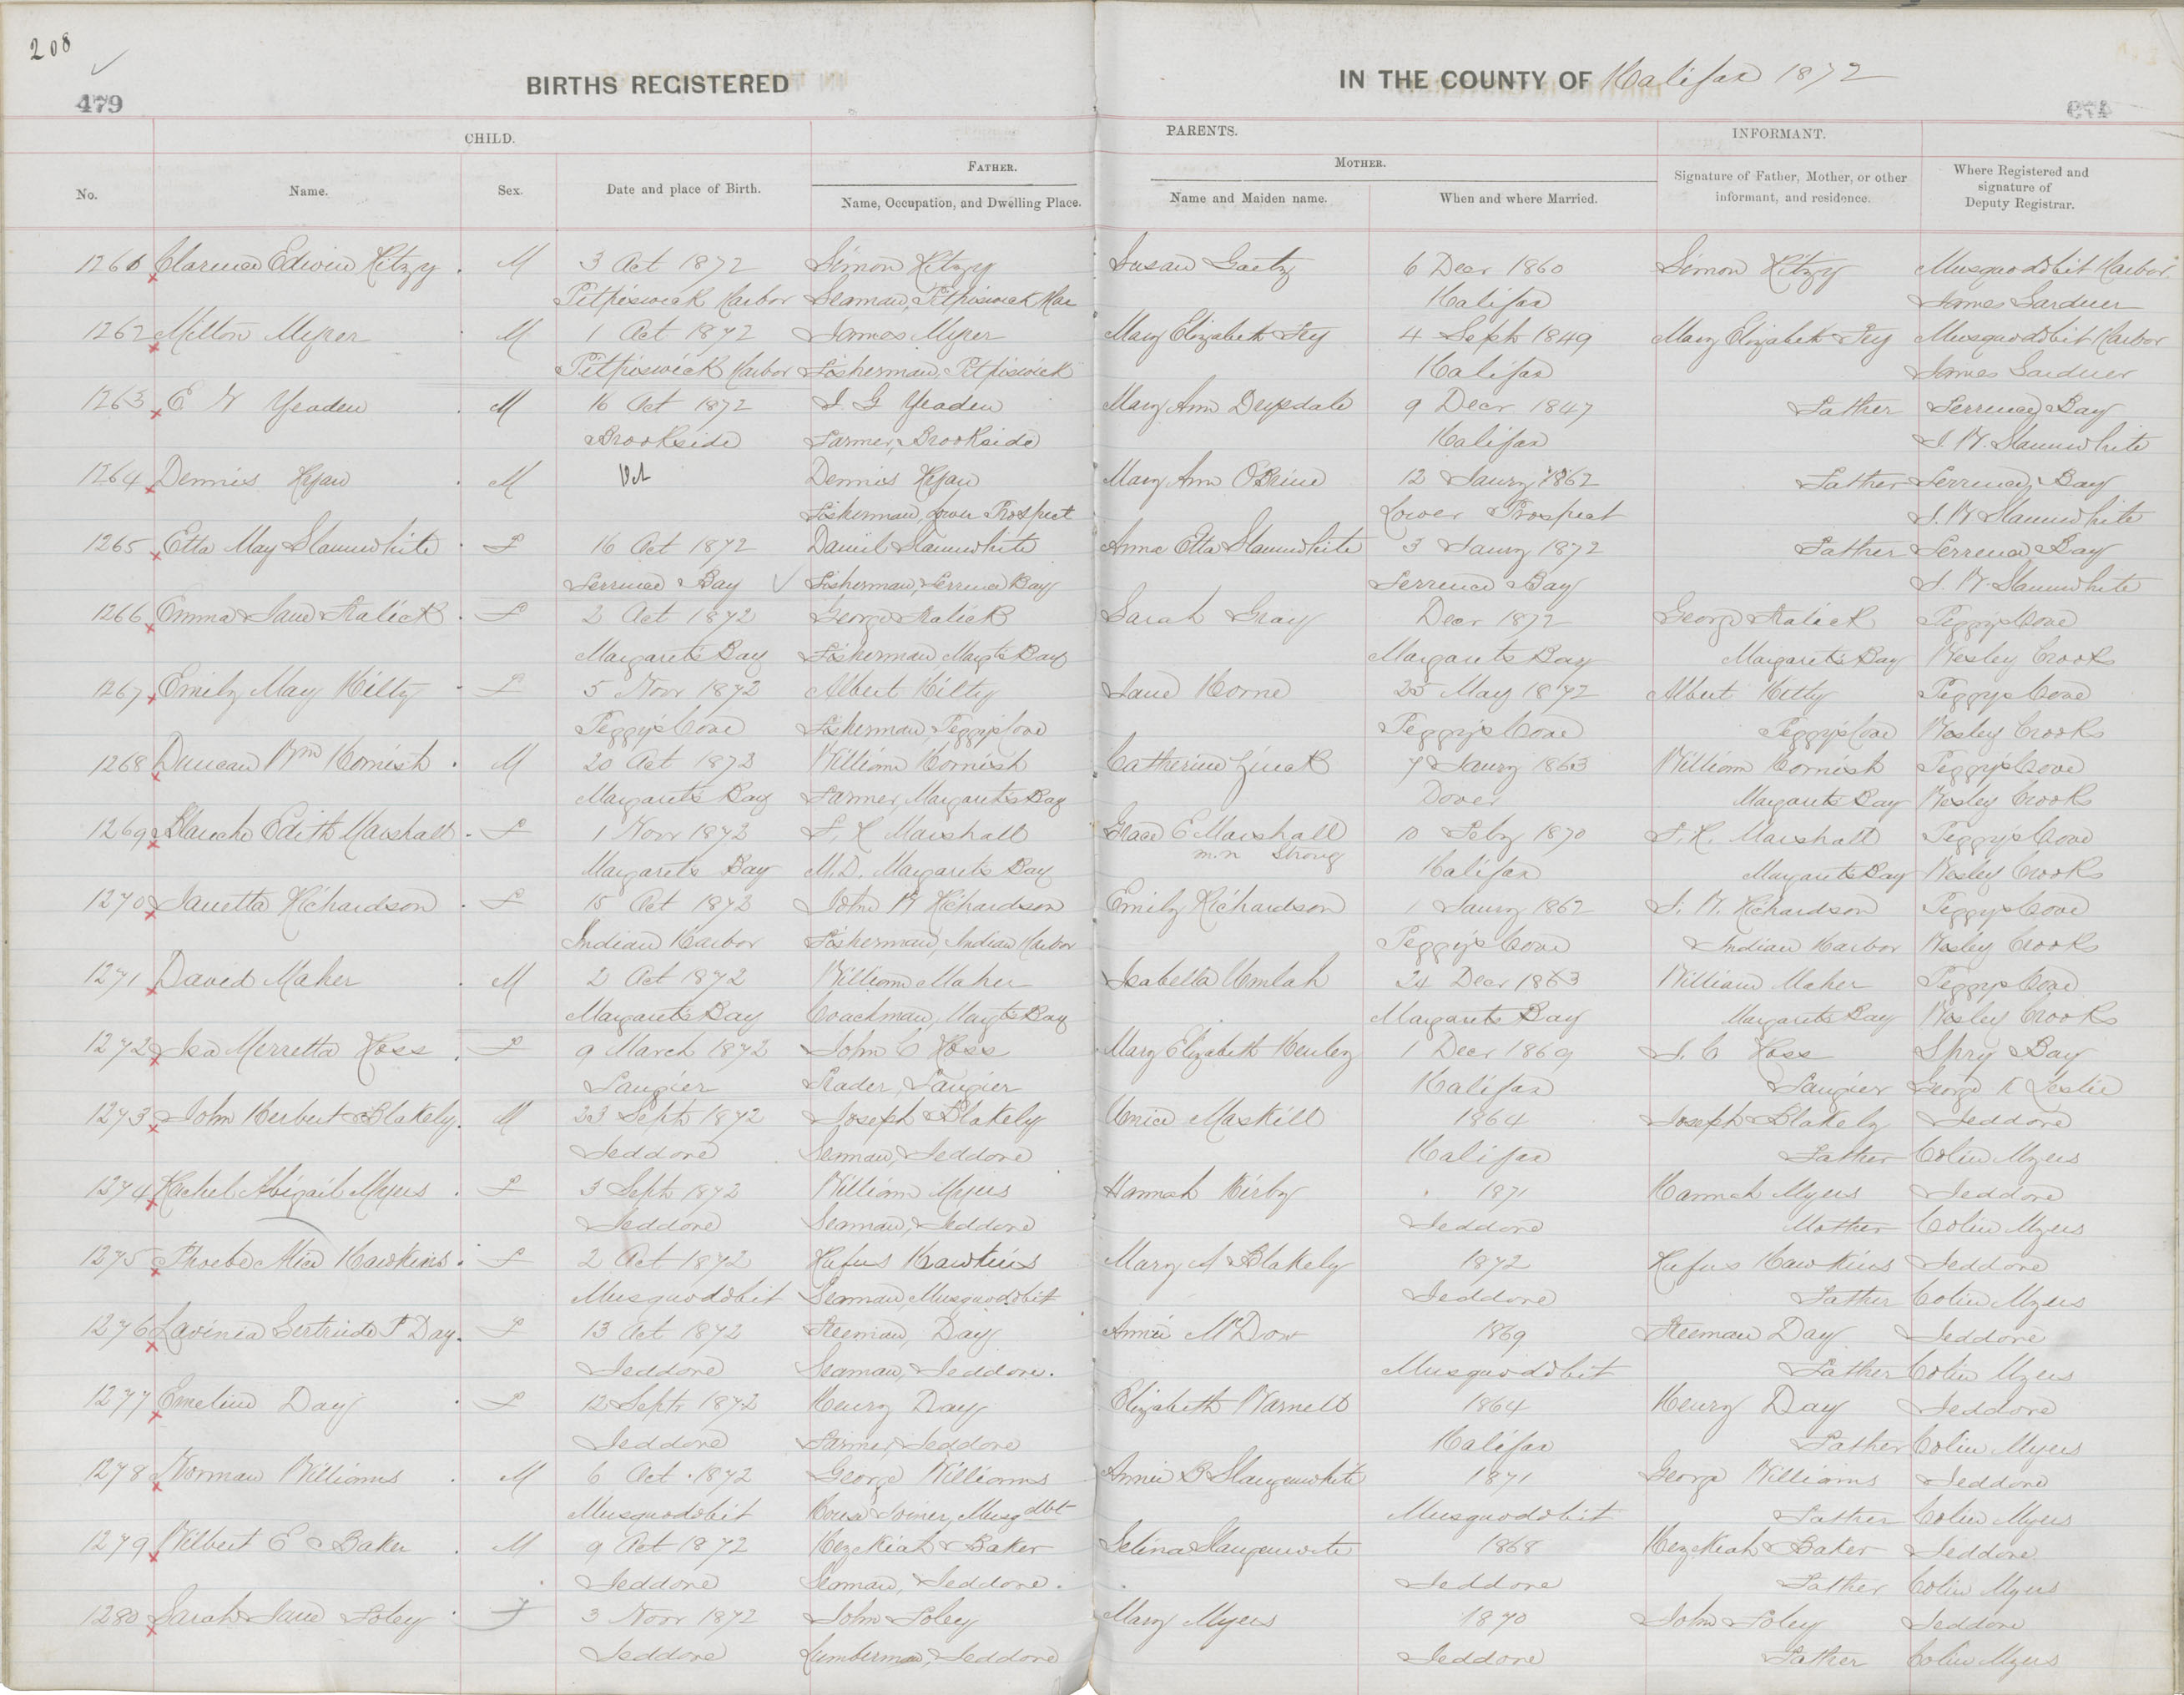 208
479
BIRTHS REGISTERED IN THE COUNTY OF Halifax 1872
CHILD. PARENTS. INFORMANT.
No. Name. Sex. Date and place of Birth. FATHER. Name, Occupation, and Dwelling Place. MOTHER. Name and Maiden name. When and where Married. Signature of Father, Mother, or other informant, and residence. Where Registered and signature of Deputy Registrar.
1261 Clarence Edwin Ritzy M 3 Oct 1872 Simon Ritzy Susan Gaetz 6 Decr 1860 Simon Ritzy Musquodobit Harbor
Petpiswick Harbor Seaman, Petpiswick Har Halifax James Gardner
1262 Milton Myrer M 1 Oct 1872 James Myrer Mary Elizabeth Fry 4 Sept 1849 Mary Elizabeth Fry Musquodobit Harbor
Petpiswick Harbor Fisherman, Petpiswick Halifax James Gardner
1263 E W Yeadon M 16 Oct 1872 J. G Yeadon Mary Ann Drysdale 9 Decr 1847 Father Terrence Bay
Brookside Farmer, Brookside Halifax J. W. Slaunwhite
1264 Dennis Ryan M Oct Dennis Ryan Mary Ann O'Brine 12 Janry 1862 Father Terrence Bay
Fisherman, Lower Prospect Lower Prospect J. W Slaunwhite
1265 Etta May Slaunwhite F 16 Oct 1872 Daniel Slaunwhite Anna Etta Slaunwhite 3 Janry 1872 Father Terrence Bay
Terrence Bay Fisherman, Terrence Bay Terrence Bay J. W. Slaunwhite
1266 Emma Jane Kalick F 2 Oct 1872 George Kalick Sarah Gray Decr 1872 George Kalick Peggy's Cove
Margaret's Bay Fisherman, Margts Bay Margarets Bay Margaret's Bay Wesley Crooks
1267 Emily May Kilty F 5 Novr 1872 Albert Kilty Jane Horne 25 May 1872 Albert Kilty Peggy's Cove
Peggy's Cove Fisherman, Peggy's Cove Peggy's Cove Peggy's Cove Wesley Crooks
1268 Duncan Wm Cornish M 20 Oct 1872 William Cornish Catherine Zinck 7 Janry 1863 William Cornish Peggy's Cove
Margarets Bay Farmer, Margarets Bay Dover Margarets Bay Wesley Crooks
1269 Blanche Edith Marshall F 1 Novr 1872 S. R Marshall Grace E Marshall 10 Feby 1870 S. R. Marshall Peggy's Cove
m.n Strong
Margarets Bay M.D. Margarets Bay Halifax Margarets Bay Wesley Crooks
1270 Janetta Richardson F 15 Oct 1872 John W Richardson Emily Richardson 1 Janry 1862 J. W. Richardson Peggy's Cove
Indian Harbor Fisherman, Indian Harbor Peggy's Cove Indian Harbor Wesley Crooks
1271 David Maher M 2 Oct 1872 William Maher Isabella Umlah 24 Decr 1863 William Maher Peggy's Cove
Margarets Bay Coachman, Margts Bay Margarets Bay Margarets Bay Wesley Crooks
1272 Isa Merretta Ross F 9 March 1872 John C Ross Mary Elizabeth Henley 1 Decr 1869 J. C Ross Spry Bay
Tangier Trader, Tangier Halifax Tangier George H Leslie
1273 John Herbert Blakely M 23 Sept 1872 Joseph Blakely Unica Maskill 1864 Joseph Blakely Jeddore
Jeddore Seaman, Jeddore Halifax Father Colin Myers
1274 Rachel Abigail Myers F 3 Sept 1872 William Myers Hannah Kirby 1871 Hannah Myers Jeddore
Jeddore Seaman, Jeddore Jeddore Mother Colin Myers
1275 Phoebe Alice Hawkins F 2 Oct 1872 Rufus Hawkins Mary A Blakely 1872 Rufus Hawkins Jeddore
Musquodobit Seaman, Musquodobit Jeddore Father Colin Myers
1276 Lavinia Gertrude P Day F 13 Oct 1872 Freeman, Day Annie McDow 1869 Freeman Day Jeddore
Jeddore Seaman, Jeddore. Musquodobit Father Colin Myers
1277 Emeline Day F 12 Sept 1872 Henry Day Elizabeth Warnell 1864 Henry Day Jeddore
Jeddore Farmer, Jeddore Halifax Father Colin Myers
1278 Norman Williams M 6 Oct 1872 George Williams Annie B Slaugenwhite 1871 George Williams Jeddore
Musquodobit House Joiner, Musqdbt Musquodobit Father Colin Myers
1279 Wilbert E Baker M 9 Oct 1872 Hezekiah Baker Selina Slaugenwite 1868 Hezekiah Baker Jeddore
Jeddore Seaman, Jeddore. Jeddore Father Colin Myers
1280 Sarah Jane Foley F 3 Novr 1872 John Foley Mary Myers 1870 John Foley Jeddore
Jeddore Lumberman, Jeddore Jeddore Father Colin Myers